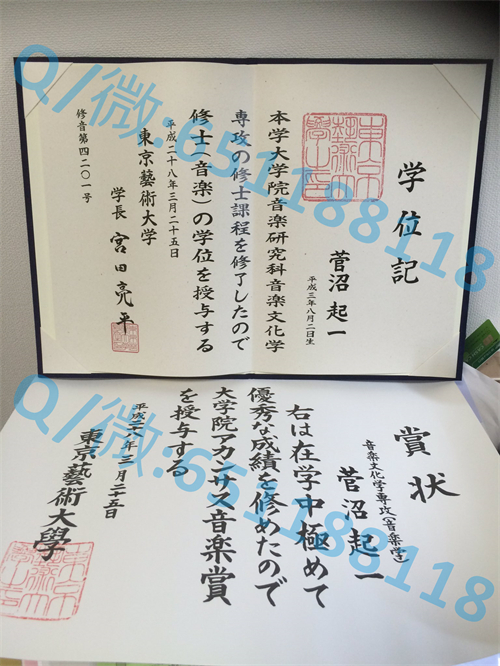 学位記
菅沼起一
平成三年八月二日生
本学大学院音楽研究科音楽文化学
専攻の修士課程を修了したので
修士(音楽)の学位を授与する
平成二十八年三月二十五日
東京藝術大学
学長 宮田亮平
修音第四二〇一号
賞状
音楽文化学専攻(音楽学)
菅沼起一
右は在学中極めて
優秀な成績を修めたので
大学院アカンサス音楽賞
を授与する
平成二八年三月二十五日
東京藝術大學
Q/微:651188118
Q/微:651188118